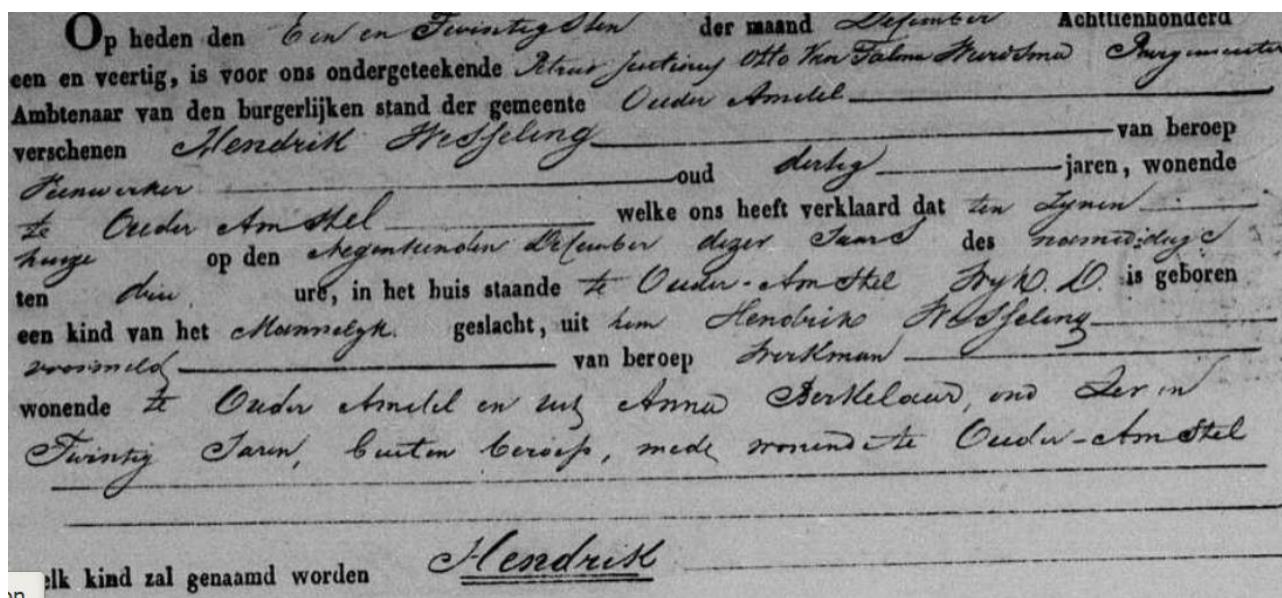 Op heden den Een en Twintigsten der maand December Achttienhonderd
een en veertig, is voor ons ondergeteekende Petrus Otto Van Burgemeester
Ambtenaar van den burgerlijken stand der gemeente Ouder Amstel
verschenen Hendrik Wesseling van beroep
Veenwerker oud dertig jaren, wonende
te Ouder Amstel welke ons heeft verklaard dat ten zynen
huize op den Negentienden December dezer Jaars des namiddags
ten drie ure, in het huis staande te Ouder-Amstel Wyk D. is geboren
een kind van het Mannelyk geslacht, uit hem Hendrik Wesseling
voormeld van beroep Werkman
wonende te Ouder Amstel en uit Anna Berkelaar, oud Zes en
Twintig Jaren, buiten beroep, mede wonende te Ouder-Amstel
elk kind zal genaamd worden Hendrik
on